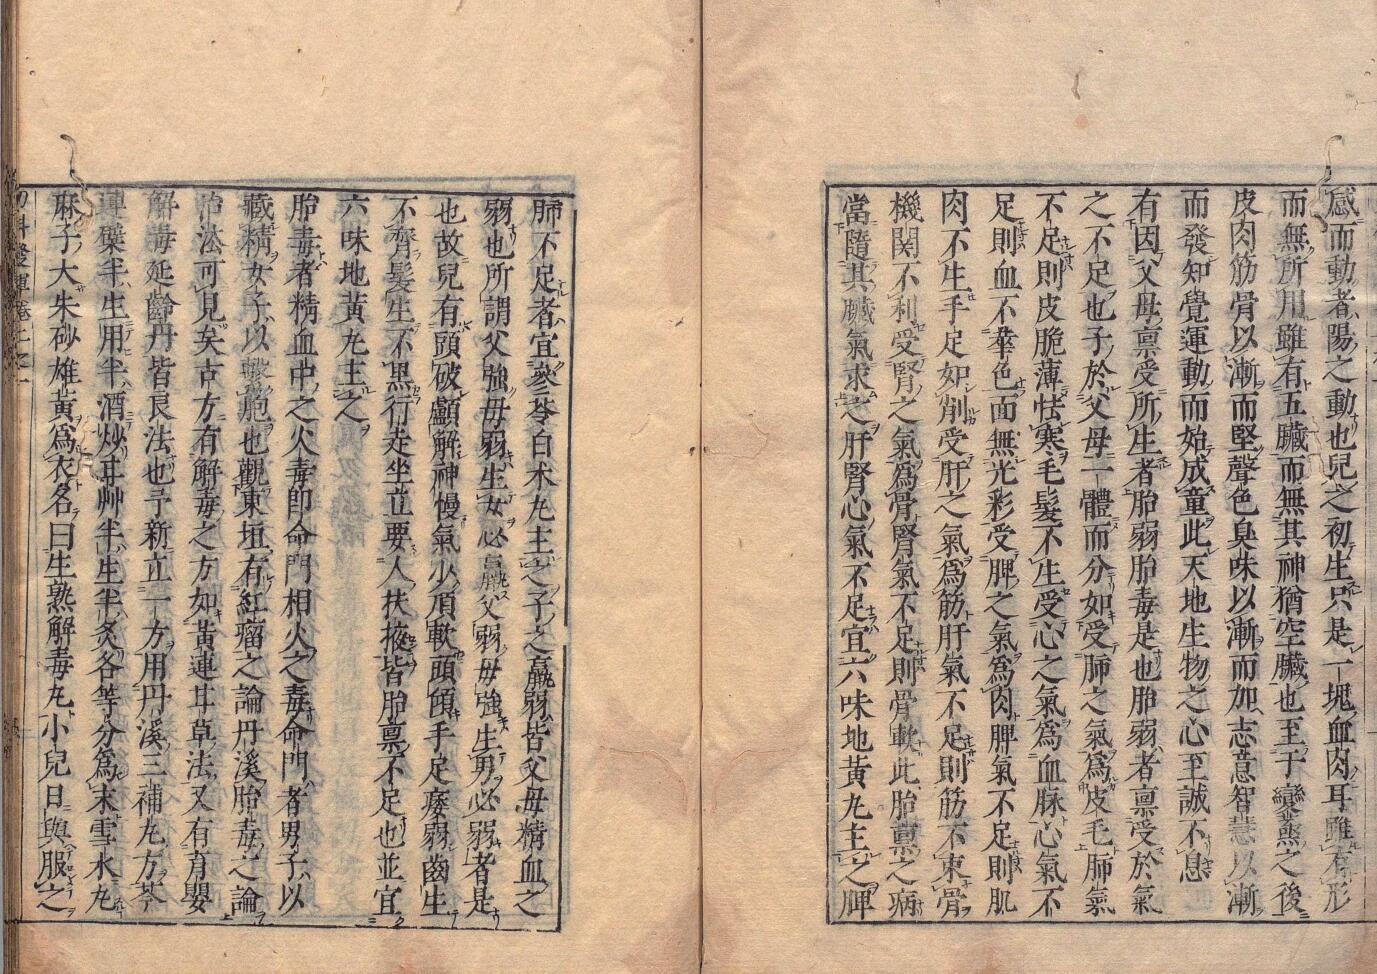 感而動者陽之動也兒之初生只是一塊血肉耳雖有形
而無所用雖有五臟而無其神猶空臟也至于變蒸之後
皮肉筋骨以漸而堅聲色臭味以漸而加志意智慧以漸
而發知覺運動而始成童此天地生物之心至誠不息
有因父母禀受所生者胎弱胎毒是也胎弱者禀受於氣
之不足也子於父母一體而分如受肺之氣為皮毛肺氣
不足則皮脆薄怯寒毛髮不生受心之氣為血脉心氣不
足則血不華色面無光彩受脾之氣為肉脾氣不足則肌
肉不生手足如削受肝之氣為筋肝氣不足則筋不束骨
機関不利受腎之氣為骨腎氣不足則骨軟此胎禀之病
當隨其臟氣求之肝腎心氣不足宜六味地黃丸主之脾
肺不足者宜參苓白术丸主之子之羸弱皆父母精血之
弱也所謂父強母弱生女必羸父弱母強生男必弱者是
也故兒有頭破顱解神慢氣少項軟頭傾手足痿弱齒生
不齊髮生不黒行走坐立要人扶掖皆胎禀不足也並宜
六味地黃丸主之
胎毒者精血中之火毒即命門相火之毒命門者男子以
藏精女子以繫胞也觀東垣有紅瘤之論丹溪胎毒之論
治法可見矣古方有解毒之方如黃連甘草法又有育嬰
解毒延齡丹皆良法也予新立一方用丹溪三補丸方芩
連蘗半生用半酒炒甘艸半生半炙各等分為末雪水丸
麻子大朱砂雄黃為衣名曰生熟解毒丸小兒日與服之